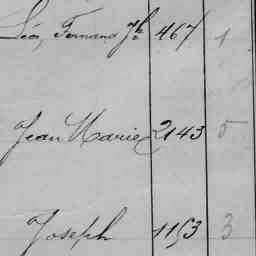 Léon, Fernand Jh 467 1
Jean Marie 2143 5
Joseph 1153 3